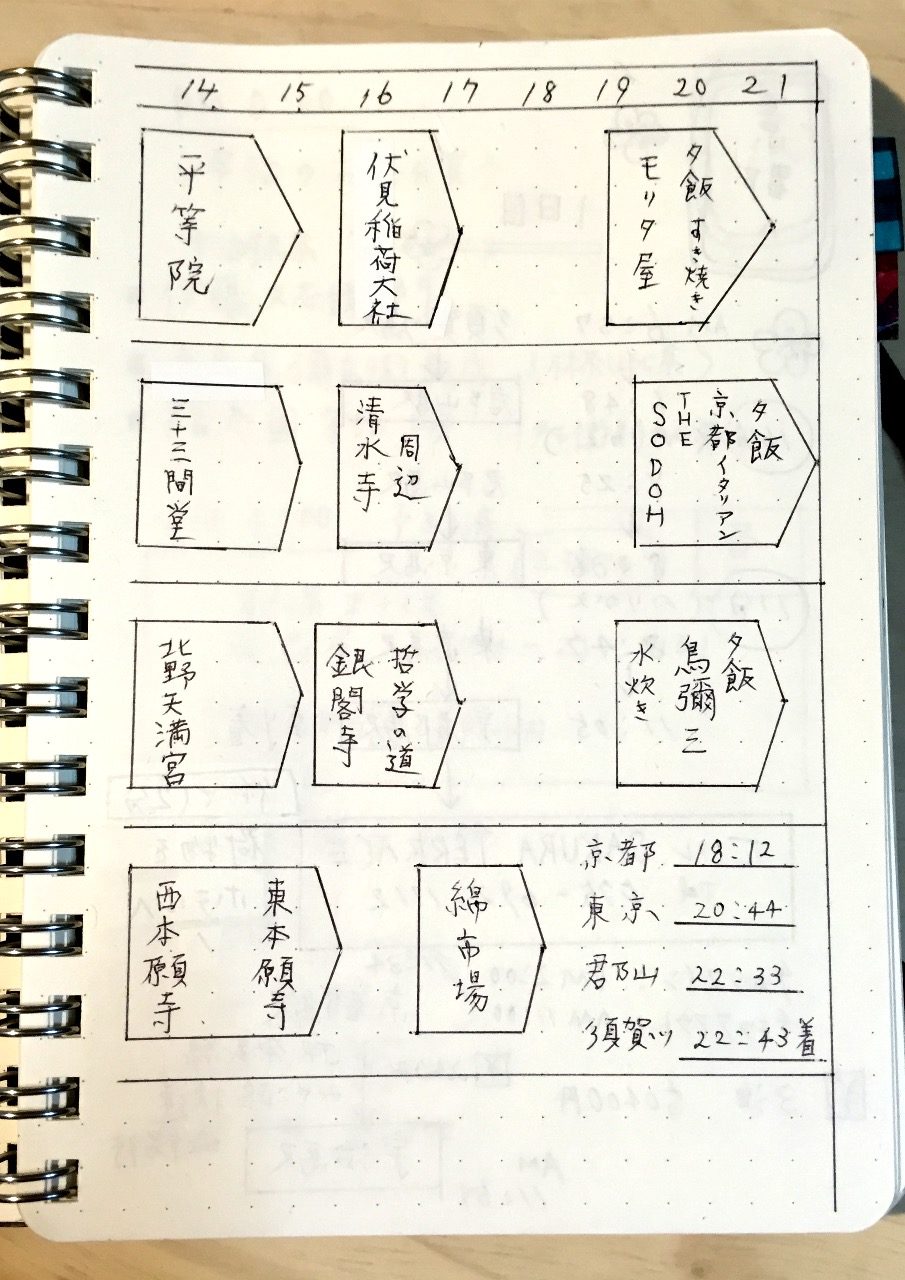 14 15 16 17 18 19 20 21
平等院
伏見稲荷大社
夕飯 すき焼き
モリタ屋
三十三間堂
周辺
清水寺
夕飯
京都イタリアン
THE
SODOH
北野天満宮
哲学の道
銀閣寺
夕飯
鳥彌三
水炊き
東本願寺
西本願寺
綿市場
京都 18:12
東京 20:44
郡山 22:33
須賀川 22:43着